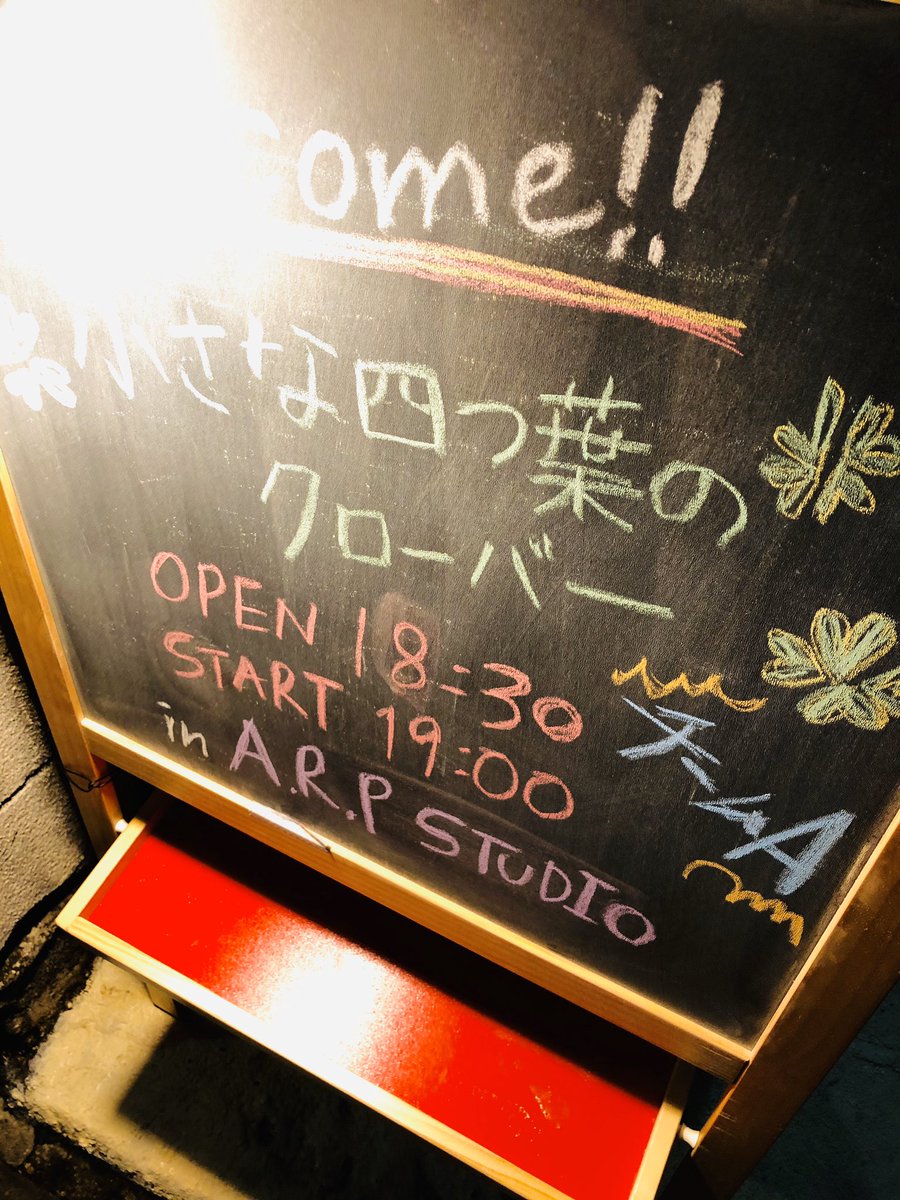 come!!
小さな四つ葉の
クローバー
OPEN 18:30
START 19:00
in A.R.P STUDIO
チームA